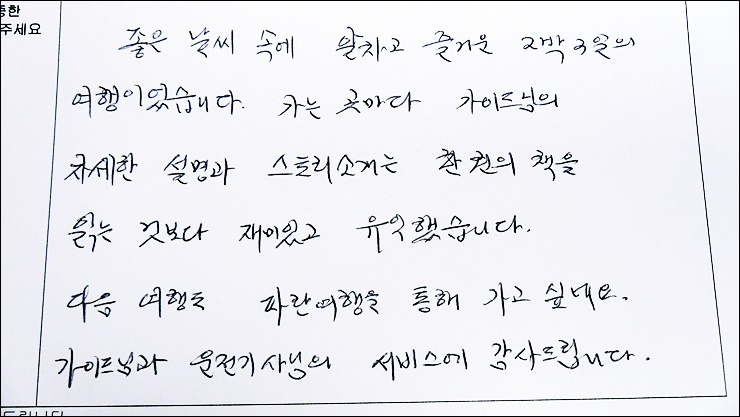 통한
주세요
좋은 날씨 속에 알차고 즐거운 2박3일의
여행이었습니다. 가는 곳마다 가이드님의
자세한 설명과 스토리소개는 한 권의 책을
읽는 것보다 재미있고 유익했습니다.
다음 여행도 파란여행을 통해 가고 싶네요.
가이드님과 운전기사님의 서비스에 감사드립니다.
드립니다